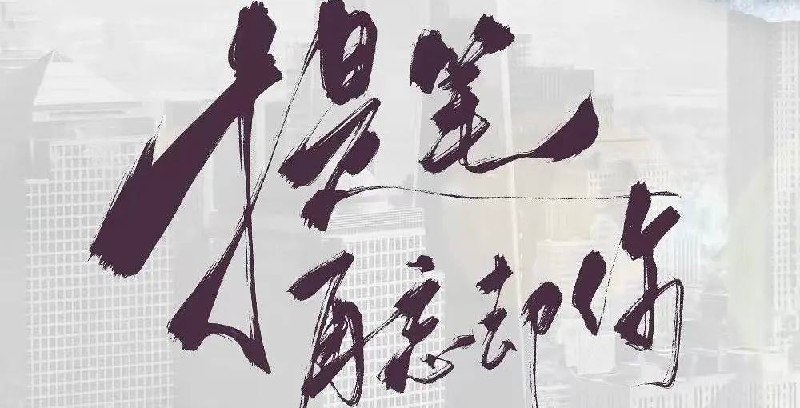 提笔
再忘却你